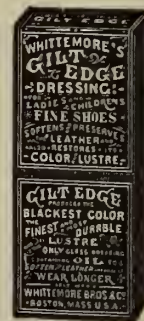 GILT EDGE
WHITTEMORE'S
GILT
EDGE
DRESSING
FOR LADIES AND CHILDREN'S
FINE SHOES
SOFTENS AND PRESERVES
LEATHER AND
ALSO RESTORES ITS
COLOR/LUSTRE
GILT EDGE
PRODUCES THE
BLACKEST COLOR
FINEST AND MOST DURABLE
LUSTRE
ONLY GLOSS DRESSING
CONTAINING OIL
SOFTEN LEATHER
WEAR LONGER
WHITTEMORE BROS & CO.
BOSTON, MASS U.S.A.